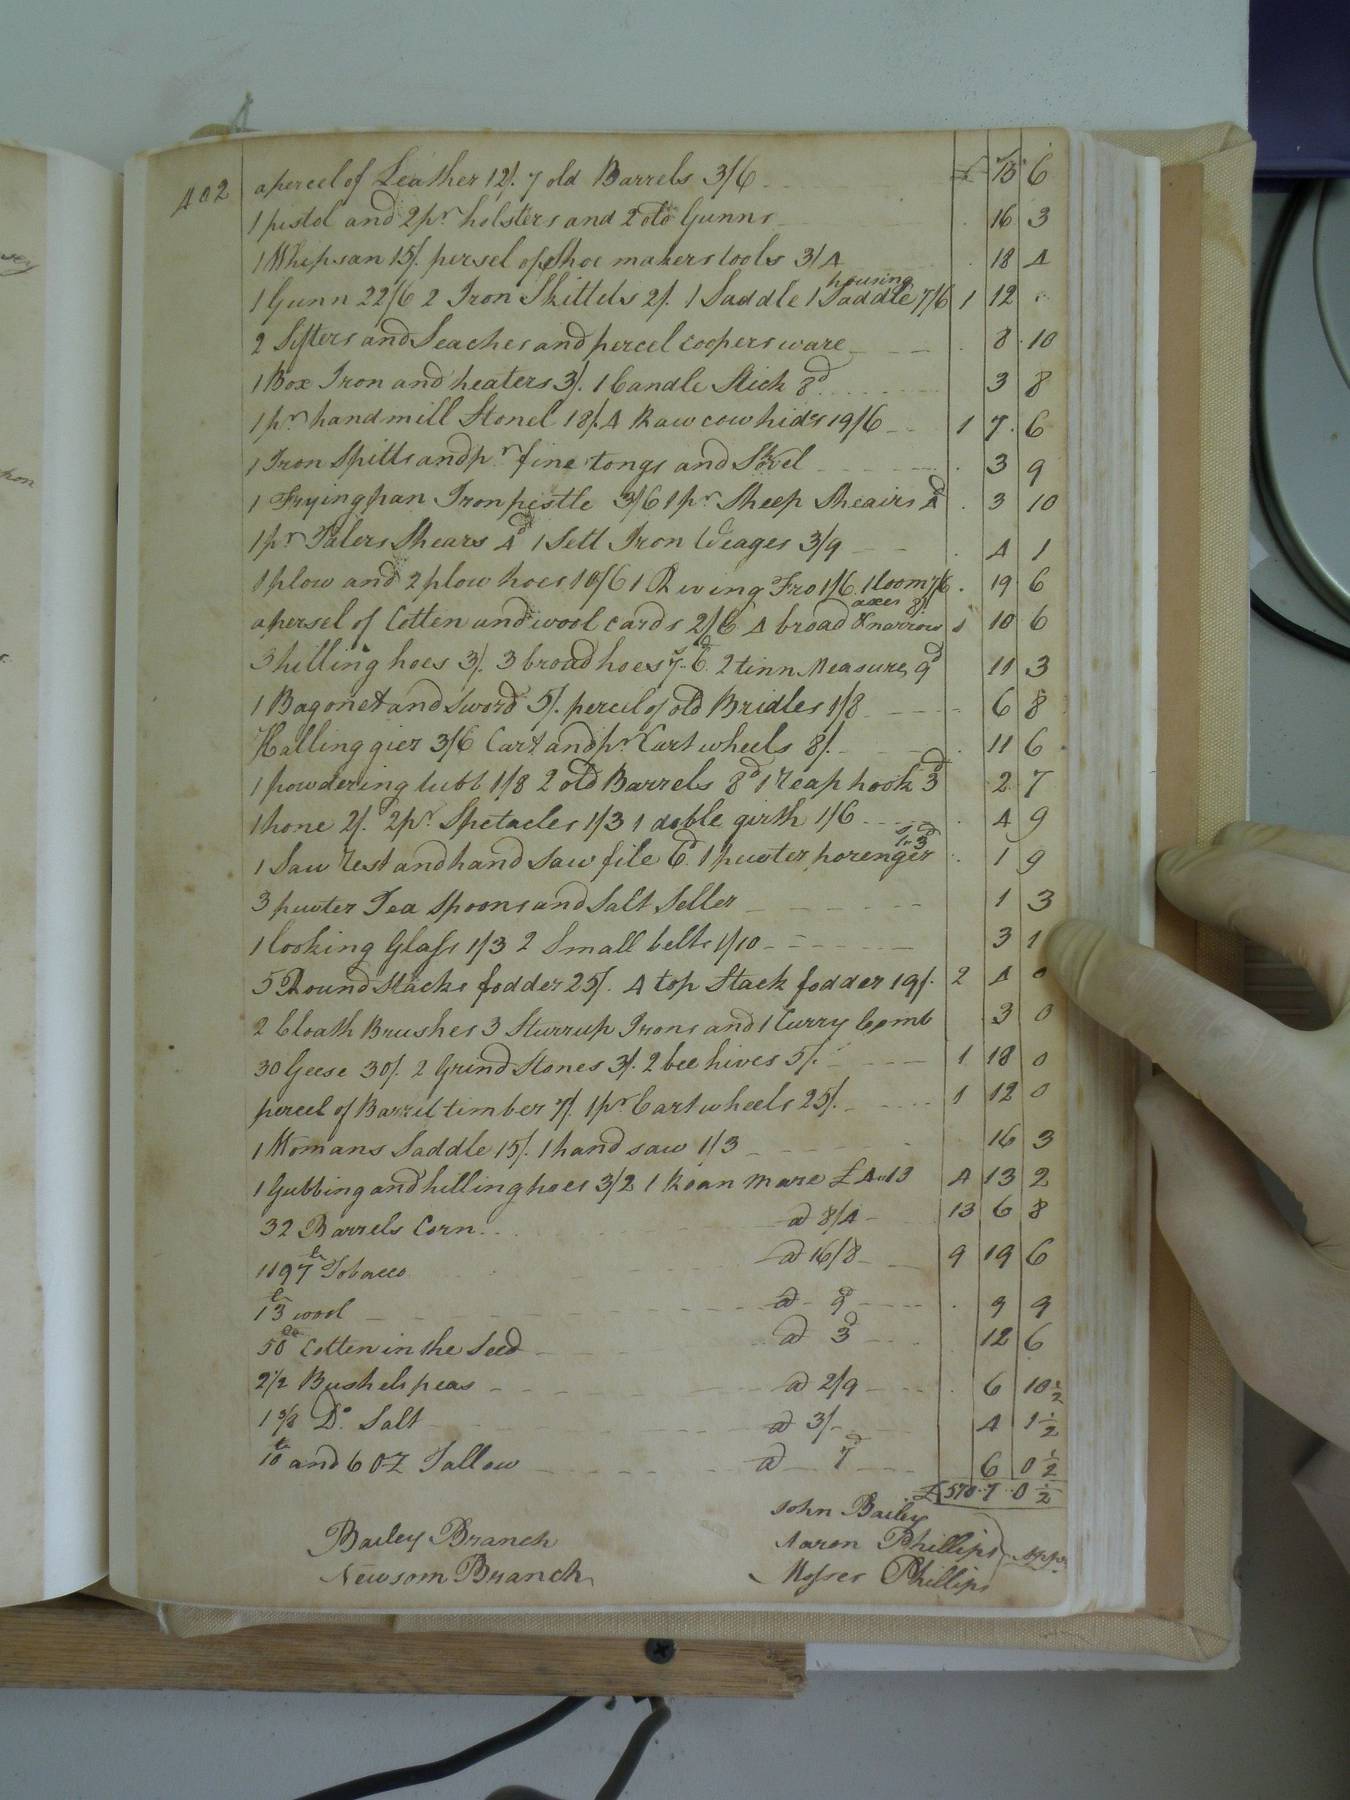 402 a percel of Leather 12/. 7 old Barrels 3/6 £ 15 6
1 pistol and 2 pr holsters and 2 old Gunns 16 3
1 Whipsan 15/. persel of Shoe makers tools 3/4 18 4
housing
1 Gunn 22/6 2 Iron Skittels 2/. 1 Saddle 1 Saddle 7/6 1 12
2 Sifters and Seaches and percel coopers ware 8 10
1 Box Iron and heaters 3/. 1 Candle Stick 8d 3 8
1 pr hand mill Stonel 18/. 4 Raw cow hides 19/6 1 7 6
1 Iron Spitts and pr fine tongs and Shovel 3 9
1 Frying pan Iron pestle 3/6 1 pr Sheep Sheairs 4d 3 10
1 pr Talers Shears 4d 1 Sett Iron Weages 3/9 4 1
1 plow and 2 plow hoes 10/6 1 Riving Fro 1/6 1 loom 7/6 19 6
axes 8/
a persel of Cotten and wool cards 2/6 4 broad & narrow 1 10 6
3 hilling hoes 3/. 3 broad hoes 7.6d 2 tinn Measures 9d 11 3
1 Bagonet and Sword 5/. percel of old Bridles 1/8 6 8
Halling gier 3/6 Cart and pr Cart wheels 8/. 11 6
1 powdering tubb 1/8 2 old Barrels 8d 1 reap hook 3d 2 7
1 hone 2/. 2 pr Spetacles 1/3 1 doble girth 1/6 4 9
1s.3d
1 Saw rest and hand saw file 6d 1 puwter porenger 1 9
3 puwter Tea Spoons and Salt Seller 1 3
1 looking Glass 1/3 2 Small belts 1/10 3 1
5 Round Stacks fodder 25/. 4 top Stack fodder 19/. 2 4 0
2 Cloath Brushes 3 Sturrup Irons and 1 Curry Comb 3 0
30 Geese 30/. 2 Grind Stones 3/. 2 bee hives 5/. 1 18 0
percel of Barrel timber 7/. 1 pr Cart wheels 25/. 1 12 0
1 Womans Saddle 15/. 1 hand saw 1/3 16 3
1 Gubbing and hilling hoes 3/2 1 Roan mare £4..13 4 13 2
32 Barrels Corn a 8/4 13 6 8
1197 lb Tobacco a 16/8 9 19 6
13 lb wool a 9d 9 9
50 lb Cotten in the Seed a 3d 12 6
2 1/2 Bushels peas a 2/9 6 10 1/2
1 3/8 Do Salt a 3/- 4 1 1/2
10 lb and 6 OZ Tallow a 7d 6 0 1/2
£ 570 7 0 1/2
John Bailey
Bailey Branch Aaron Phillips Appr.
Newsom Branch Moses Phillips